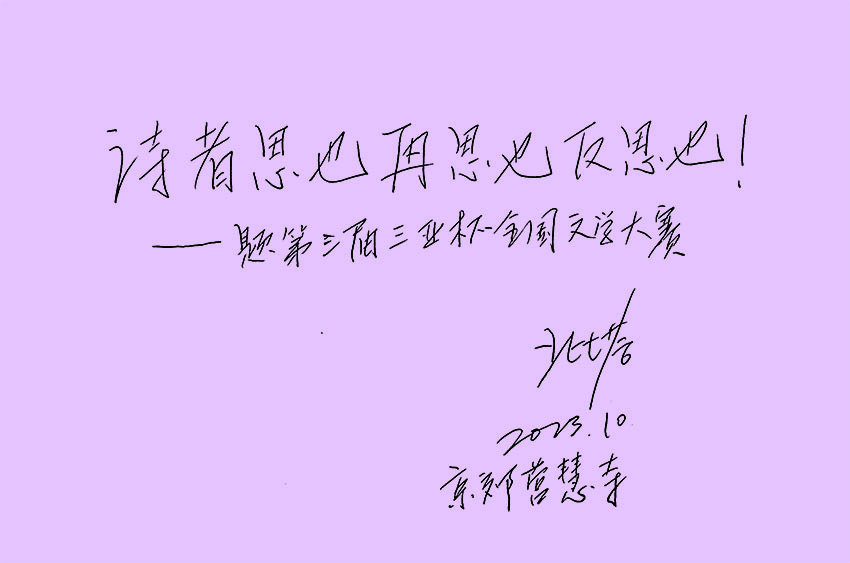 诗者思也再思也反思也！
——题第三届三亚杯全国文学大赛
北塔
2023.10
京郊营慧寺